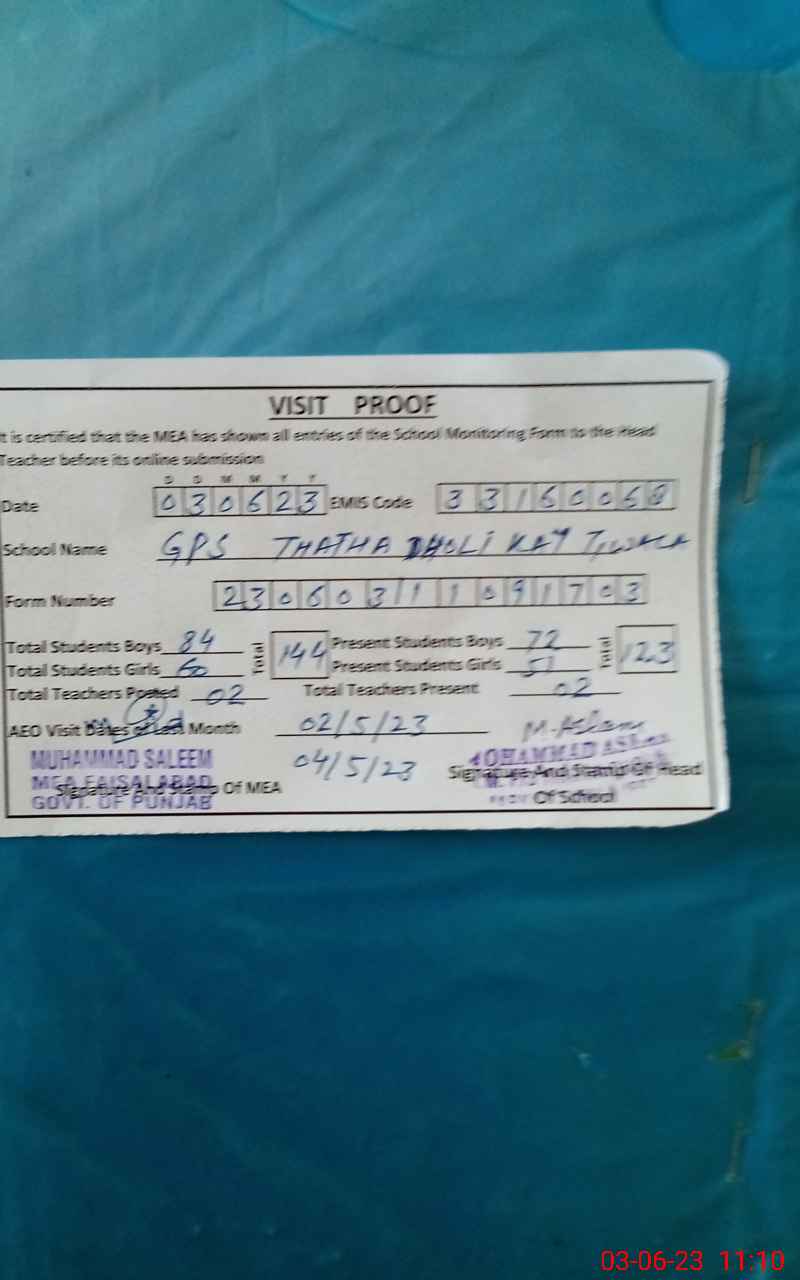 VISIT PROOF
It is certified that the MEA has shown all entries of the School Monitoring Form to the Head
Teacher before its online submission
D D M M Y Y
Date 030623 EMIS Code 33160068
School Name GPS THATHA DHOLI KAY
Form Number 23060311091703
Total Students Boys 84 Total 144 Present Students Boys 72 Total 123
Total Students Girls 60 Present Students Girls 51
Total Teachers Posted 02 Total Teachers Present 02
AEO Visit Dates of Last Month 02/5/23 M. Aslam
04/5/23
MUHAMMAD SALEEM
MEA FAISALABAD
GOVT. OF PUNJAB
Signature And Stamp Of MEA
Signature And Stamp Of Head
Of School
03-06-23 11:10